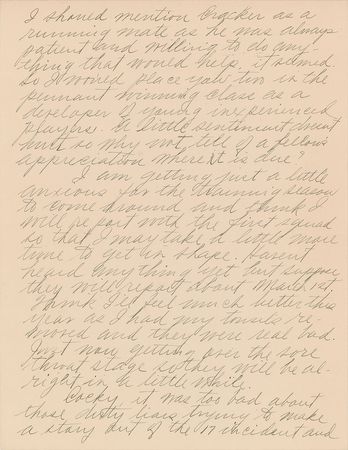 I should mention Crocker as a
running mate as he was always
patient and willing to do any-
thing that would help, it seemed
so I would place you two in the
pennant winning class as a
developer of young inexperienced
players. A little sentiment doesnt
hurt so why not tell of a fellows
appreciation where it is due."
I am getting just a little
anxious for the training season
to come around and think I
will report with the first squad
so that I may take a little more
time to get in shape. Havent
heard anything yet but suppose
they will report about March 1st.
Think I'll feel much better this
year as I had my tonsils re-
moved and they were real bad.
Just now getting over the sore
throat stage so they will be al-
right in a little while.
Cocky, it was too bad about
those dirty liars trying to make
a story out of the 17 incident and